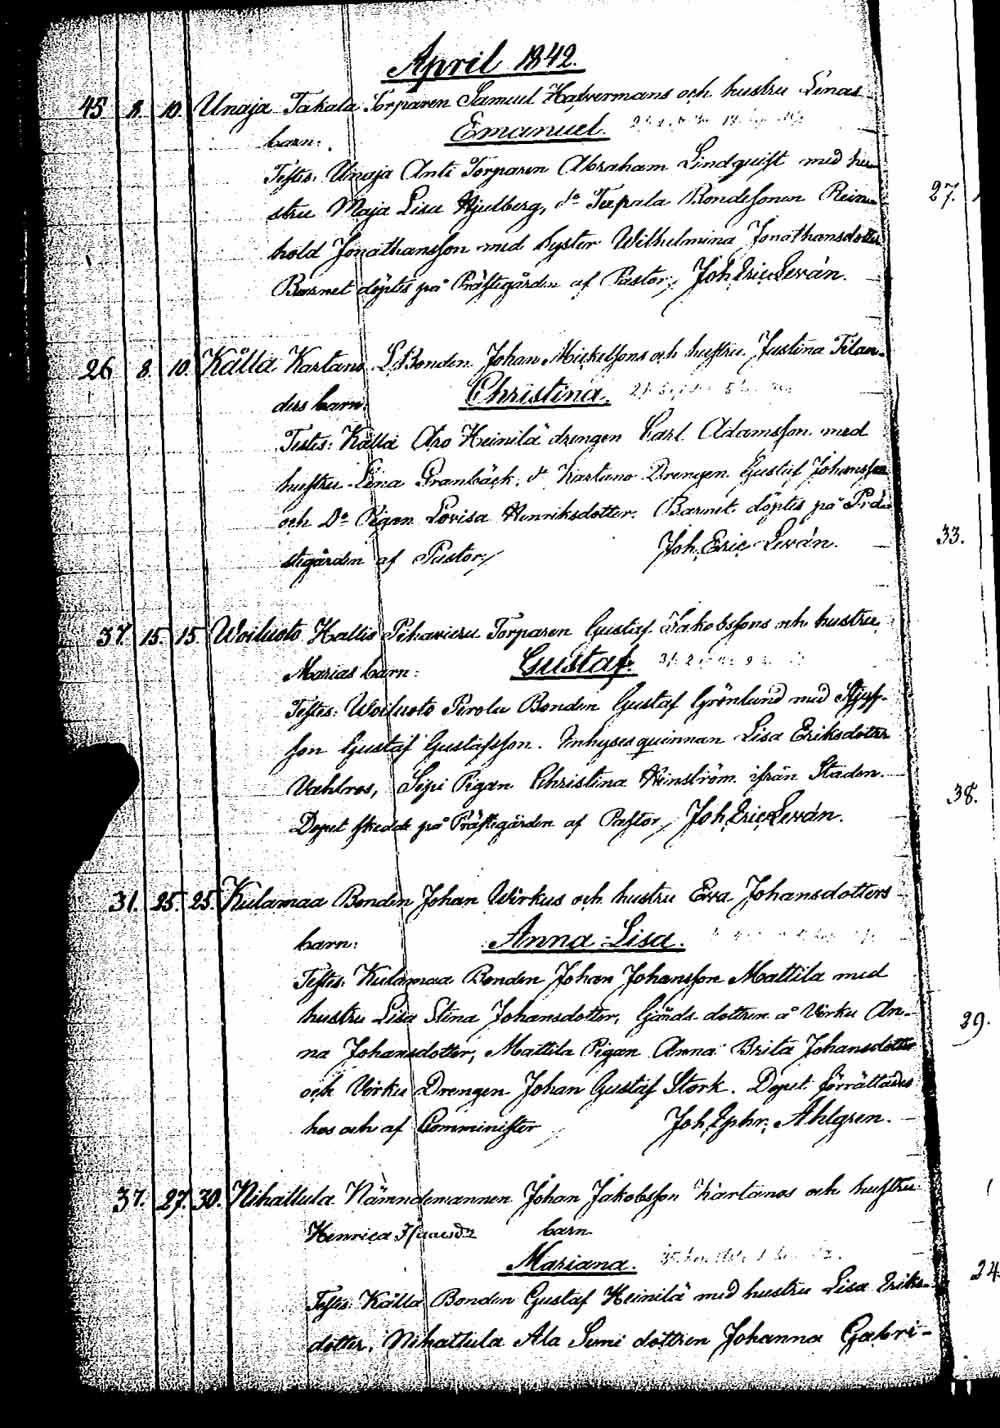 April 1842.
45 8. 10. Unaja Takala Torparen Samuel Halvermans och hustru Lenas
barn: Emanuel.
Testes: Unaja Anti Torparen Abraham Lindquist med hu-
stru Maja Lisa Hjelberg, do Tupala Bondesonen Rein-
hold Jonathansson med Syster Wilhelmina Jonathansdotter
Barnet döptes på Prästegården af Pastor, Joh. Eric Levän.
26 8. 10. Kålla Kartano Bonden Johan Mickelssons och hustru Justina Tilan-
ders barn: Christina.
Testes: Kålla Aro Heinilä drengen Carl Adamsson med
hustru Lena Granbäck, do Kartano Drengen Gustaf Johansson
och Do Pigan Lovisa Henriksdotter. Barnet döptes på Prä-
stegården af Pastor, Joh. Eric Levän.
37. 15. 15. Woiluoto Kallio Pihavieru Torparen Gustaf Jakobssons och hustru
Marias barn: Gustaf.
Testes: Woiluoto Perola Bonden Gustaf Grönlund med Styf-
son Gustaf Gustafsson. Inhyses quinnan Lisa Eriksdotter
Vahlros, Pigan Christina Winström ifrån Staden.
Dopet skedde på Prästegården af Pastor, Joh. Eric Levän.
31. 25. 25. Kulamaa Bonden Johan Wirkus och hustru Eva Johansdotters
barn: Anna Lisa.
Testes: Kulamaa Bonden Johan Johansson Mattila med
hustru Lisa Stina Johansdotter, Gårds dottren å Virku An-
na Johansdotter, Mattila Pigan Anna Brita Johansdotter
och Virku Drengen Johan Gustaf Stork. Dopet förrättades
hos och af Comminister Joh. Ephr. Ahlgren.
37. 27. 30. Nihattula Nämndemannen Johan Jakobsson Kartanos och hustru
Henrica Isaacsdr barn
Mariana.
Testes: Kålla Bonden Gustaf Heinilä med hustru Lisa Eriks-
dotter, Nihattula Ala Simi dottren Johanna Gabri-
27.
33.
38.
29.
24